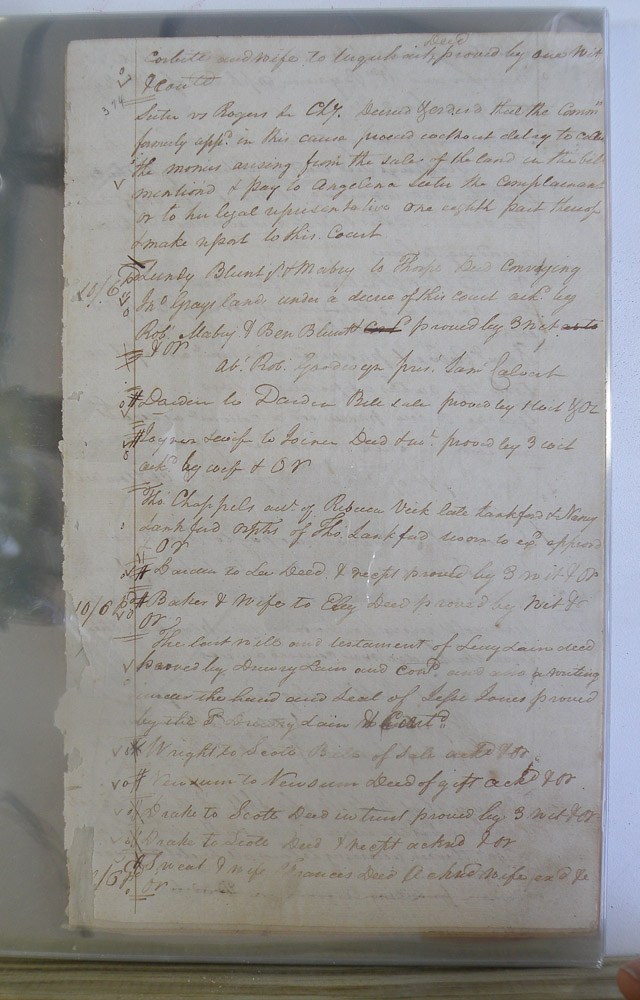 Deed
Corbett and wife to Urquhart, proved by one Wit
& Cont'd
374
vs Rogers In Chy. Decreed & ordered that the Comm
formerly app.d in this cause proceed without delay to
the monies arising from the sale of the land in the bill
mentioned & pay to Angelina the Complainant
or to her legal representative one eighth part thereof
& make report to this Court
10/6 Lundy Blunt & Mabry to Thorp Deed Conveying
Jno Grays land under a decree of this court ack.d by
Rob. Mabry & Ben Blunt proved by 3 wit
& OR
Ab.t Rob. Goodwyn pres.t Sam Calvert
Darden to Darden Bill Sale proved by 1 wit & OR
Joyner & wife to Joiner Deed proved by 3 wit
ack.d by wife & OR
Tho. Chappels acc.t of Rebecca Vick late Lankford & Nancy
Lankford orphs of Tho. Lankford sworn to ex.d approved
& OR
Darden to Lee Deed & recpt proved by 3 wit & OR
10/6 Baker & Wife to Eley Deed proved by Wit &
OR
The last will and testament of Levy Lain deced
proved by Drewry Lain and Cont.d and a writing
under the hand and Seal of Jesse Jones proved
by the Drewry Lain & Cont.d
Wright to Scott Bill of Sale ack.d & OR
Newsum to Newsum Deed of gift ack.d & OR
Drake to Scott Deed in trust proved by 3 wit & OR
Drake to Scott Deed & recept acknd & or
/6 Sweat & wife Frances Deed Acknd wife ex.d &
or